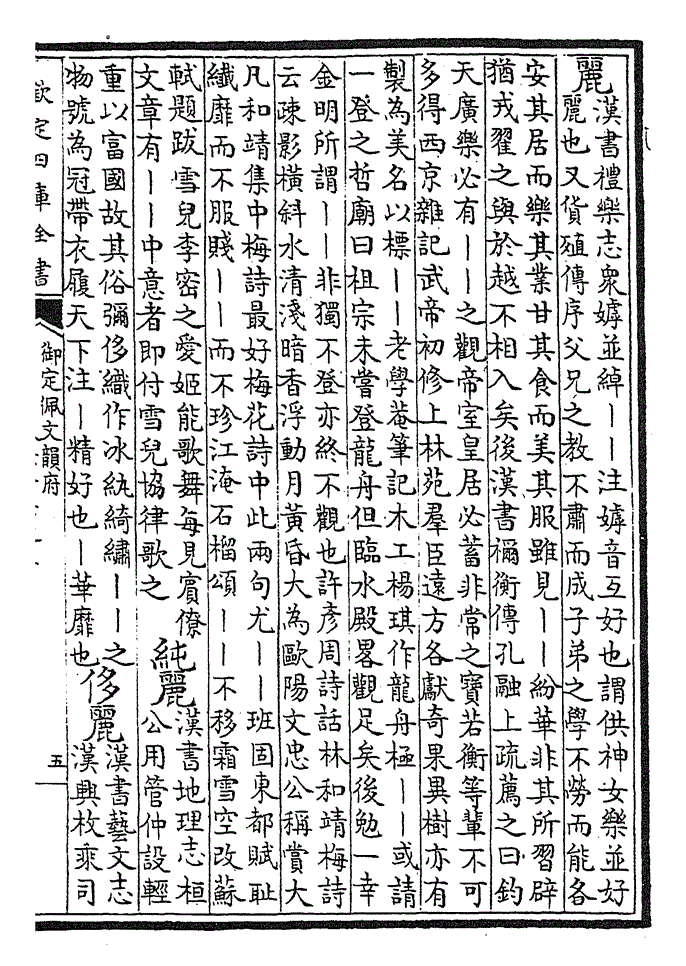 麗
漢書禮樂志衆嫭並綽丨丨注嫭音互好也謂供神女樂並好
麗也又貨殖傳序父兄之教不肅而成子弟之學不勞而能各
安其居而樂其業甘其食而美其服雖見丨丨紛華非其所習辟
猶戎翟之與於越不相入矣後漢書禰衡傳孔融上疏薦之曰鈞
天廣樂必有丨丨之觀帝室皇居必蓄非常之寶若衡等輩不可
多得西京雜記武帝初修上林苑羣臣遠方各獻奇果異樹亦有
製為美名以標丨丨老學菴筆記木工楊琪作龍舟極丨丨或請
一登之哲廟曰祖宗未嘗登龍舟但臨水殿畧觀足矣後勉一幸
金明所謂丨丨非獨不登亦終不觀也許彥周詩話林和靖梅詩
云疎影橫斜水清淺暗香浮動月黃昏大為歐陽文忠公稱賞大
凡和靖集中梅詩最好梅花詩中此兩句尤丨丨班固東都賦耻
纖靡而不服賤丨丨而不珍江淹石榴頌丨丨不移霜雪空改蘇
軾題跋雪兒李密之愛姬能歌舞每見賓僚
文章有丨丨中意者即付雪兒協律歌之
純麗
漢書地理志桓
公用管仲設輕
重以富國故其俗彌侈織作冰紈綺繡丨丨之
物號為冠帶衣履天下注丨精好也丨華靡也
侈麗
漢書藝文志
漢興枚乘司
欽定四庫全書
御定佩文韻府
五